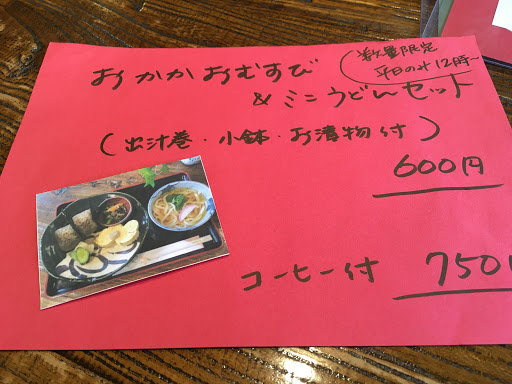 数量限定
平日のみ12時~
おかかおむすび
&ミニうどんセット
(出汁巻・小鉢・お漬物付)
600円
コーヒー付 750